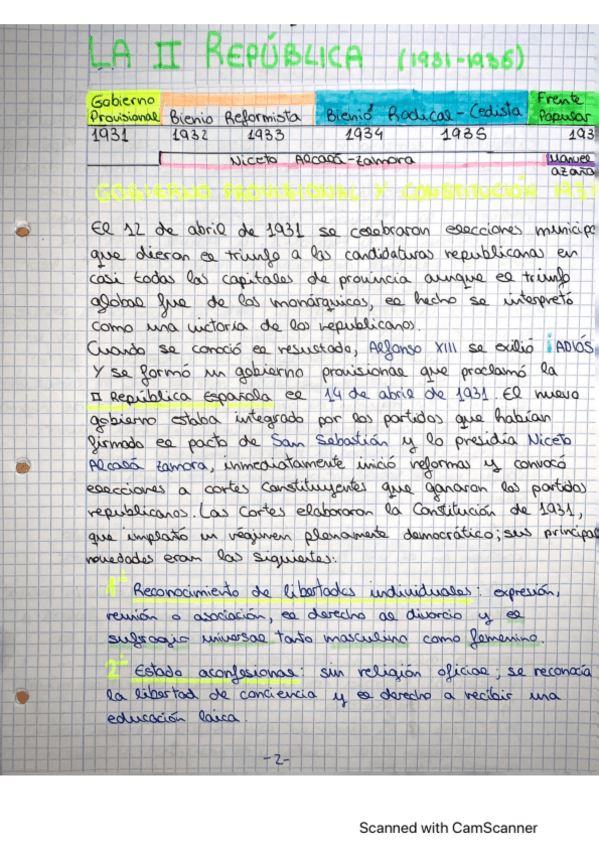 LA II REPÚBLICA (1931-1936)
Gobierno Provisional Bienio Reformista Bienio Radical-Cedista Frente Popular
1931 1932 1933 1934 1935 193
Niceto Alcalá-Zamora Manuel azaña
GOBIERNO PROVISIONAL Y CONSTITUCIÓN 1931
El 12 de abril de 1931 se celebraron elecciones municipa
que dieron el triunfo a las candidaturas republicanas en
casi todas las capitales de provincia aunque el triunfo
global fue de los monárquicos, el hecho se interpretó
como una victoria de los republicanos.
Cuando se conoció el resultado, Alfonso XIII se exilió ¡ADIÓS
Y se formó un gobierno provisional que proclamó la
II República Española el 14 de abril de 1931. El nuevo
gobierno estaba integrado por los partidos que habían
firmado el pacto de San Sebastián y lo presidía Niceto
Alcalá Zamora, inmediatamente inició reformas y convocó
elecciones a cortes constituyentes que ganaron los partidos
republicanos. Las Cortes elaboraron la Constitución de 1931,
que implantó un régimen plenamente democrático; sus principal
novedades eran las siguientes:
1º Reconocimiento de libertades individuales: expresión,
reunión o asociación, el derecho al divorcio y el
sufragio universal tanto masculino como femenino.
2º Estado aconfesional: sin religión oficial; se reconocía
la libertad de conciencia y el derecho a recibir una
educación laica.
-2-
Scanned with CamScanner